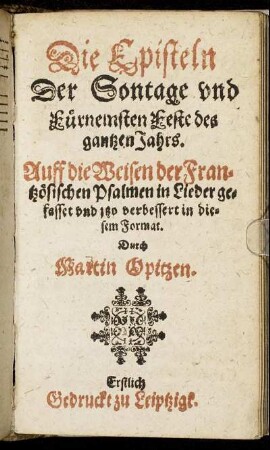 Die Episteln
Der Sontage vnd
Fürnemsten Feste des
gantzen Jahrs.
Auff die Weisen der Fran-
tzösischen Psalmen in Lieder ge-
fasset vnd itzo verbessert in die-
sem Format.
Durch
Martin Opitzen.
Erstlich
Gedruckt zu Leiptzigk.